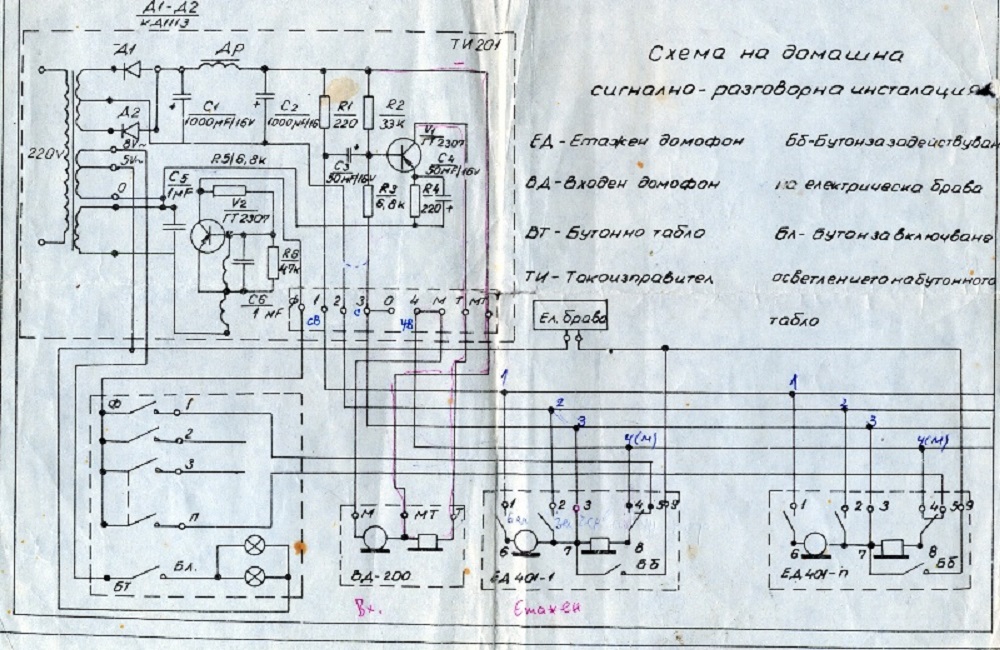 Д1-Д2
КД1113
ТИ 201
Схема на домашна
сигнално-разговорна инсталация
ЕД - Етажен домофон
ББ-Бутон за задействуван
ВД-Входен домофон
на електрическа брава
ВТ - Бутонно табло
Бл- Бутон за включване
ТИ - Токоизправител
осветлението на бутонното
табло
Д1
ДР
Д2
С1
1000MF/16V
С2
1000MF/16V
R1
220
R2
33К
V1
ГТ2307
С3
50MF/16V
С4
50MF/16V
R3
6,8К
R4
220
220V
8V~
5V~
0
R5/6,8К
С5
1MF
V2
ГТ2307
R6
47К
С6
1MF
Ф 1 2 3 0 4 М Т МТ
св с чв
Ел. брава
1 2 3 4(М)
1 2 3 4(М)
Ф 1
2
3
П
Бл.
БТ
М МТ Т
ВД-200
Вх.
1 2 3 4 5 9
6 7 8
ББ
ЕД 401-1
Етажен
1 2 3 4 5 9
6 7 8
ББ
ЕД 401-п